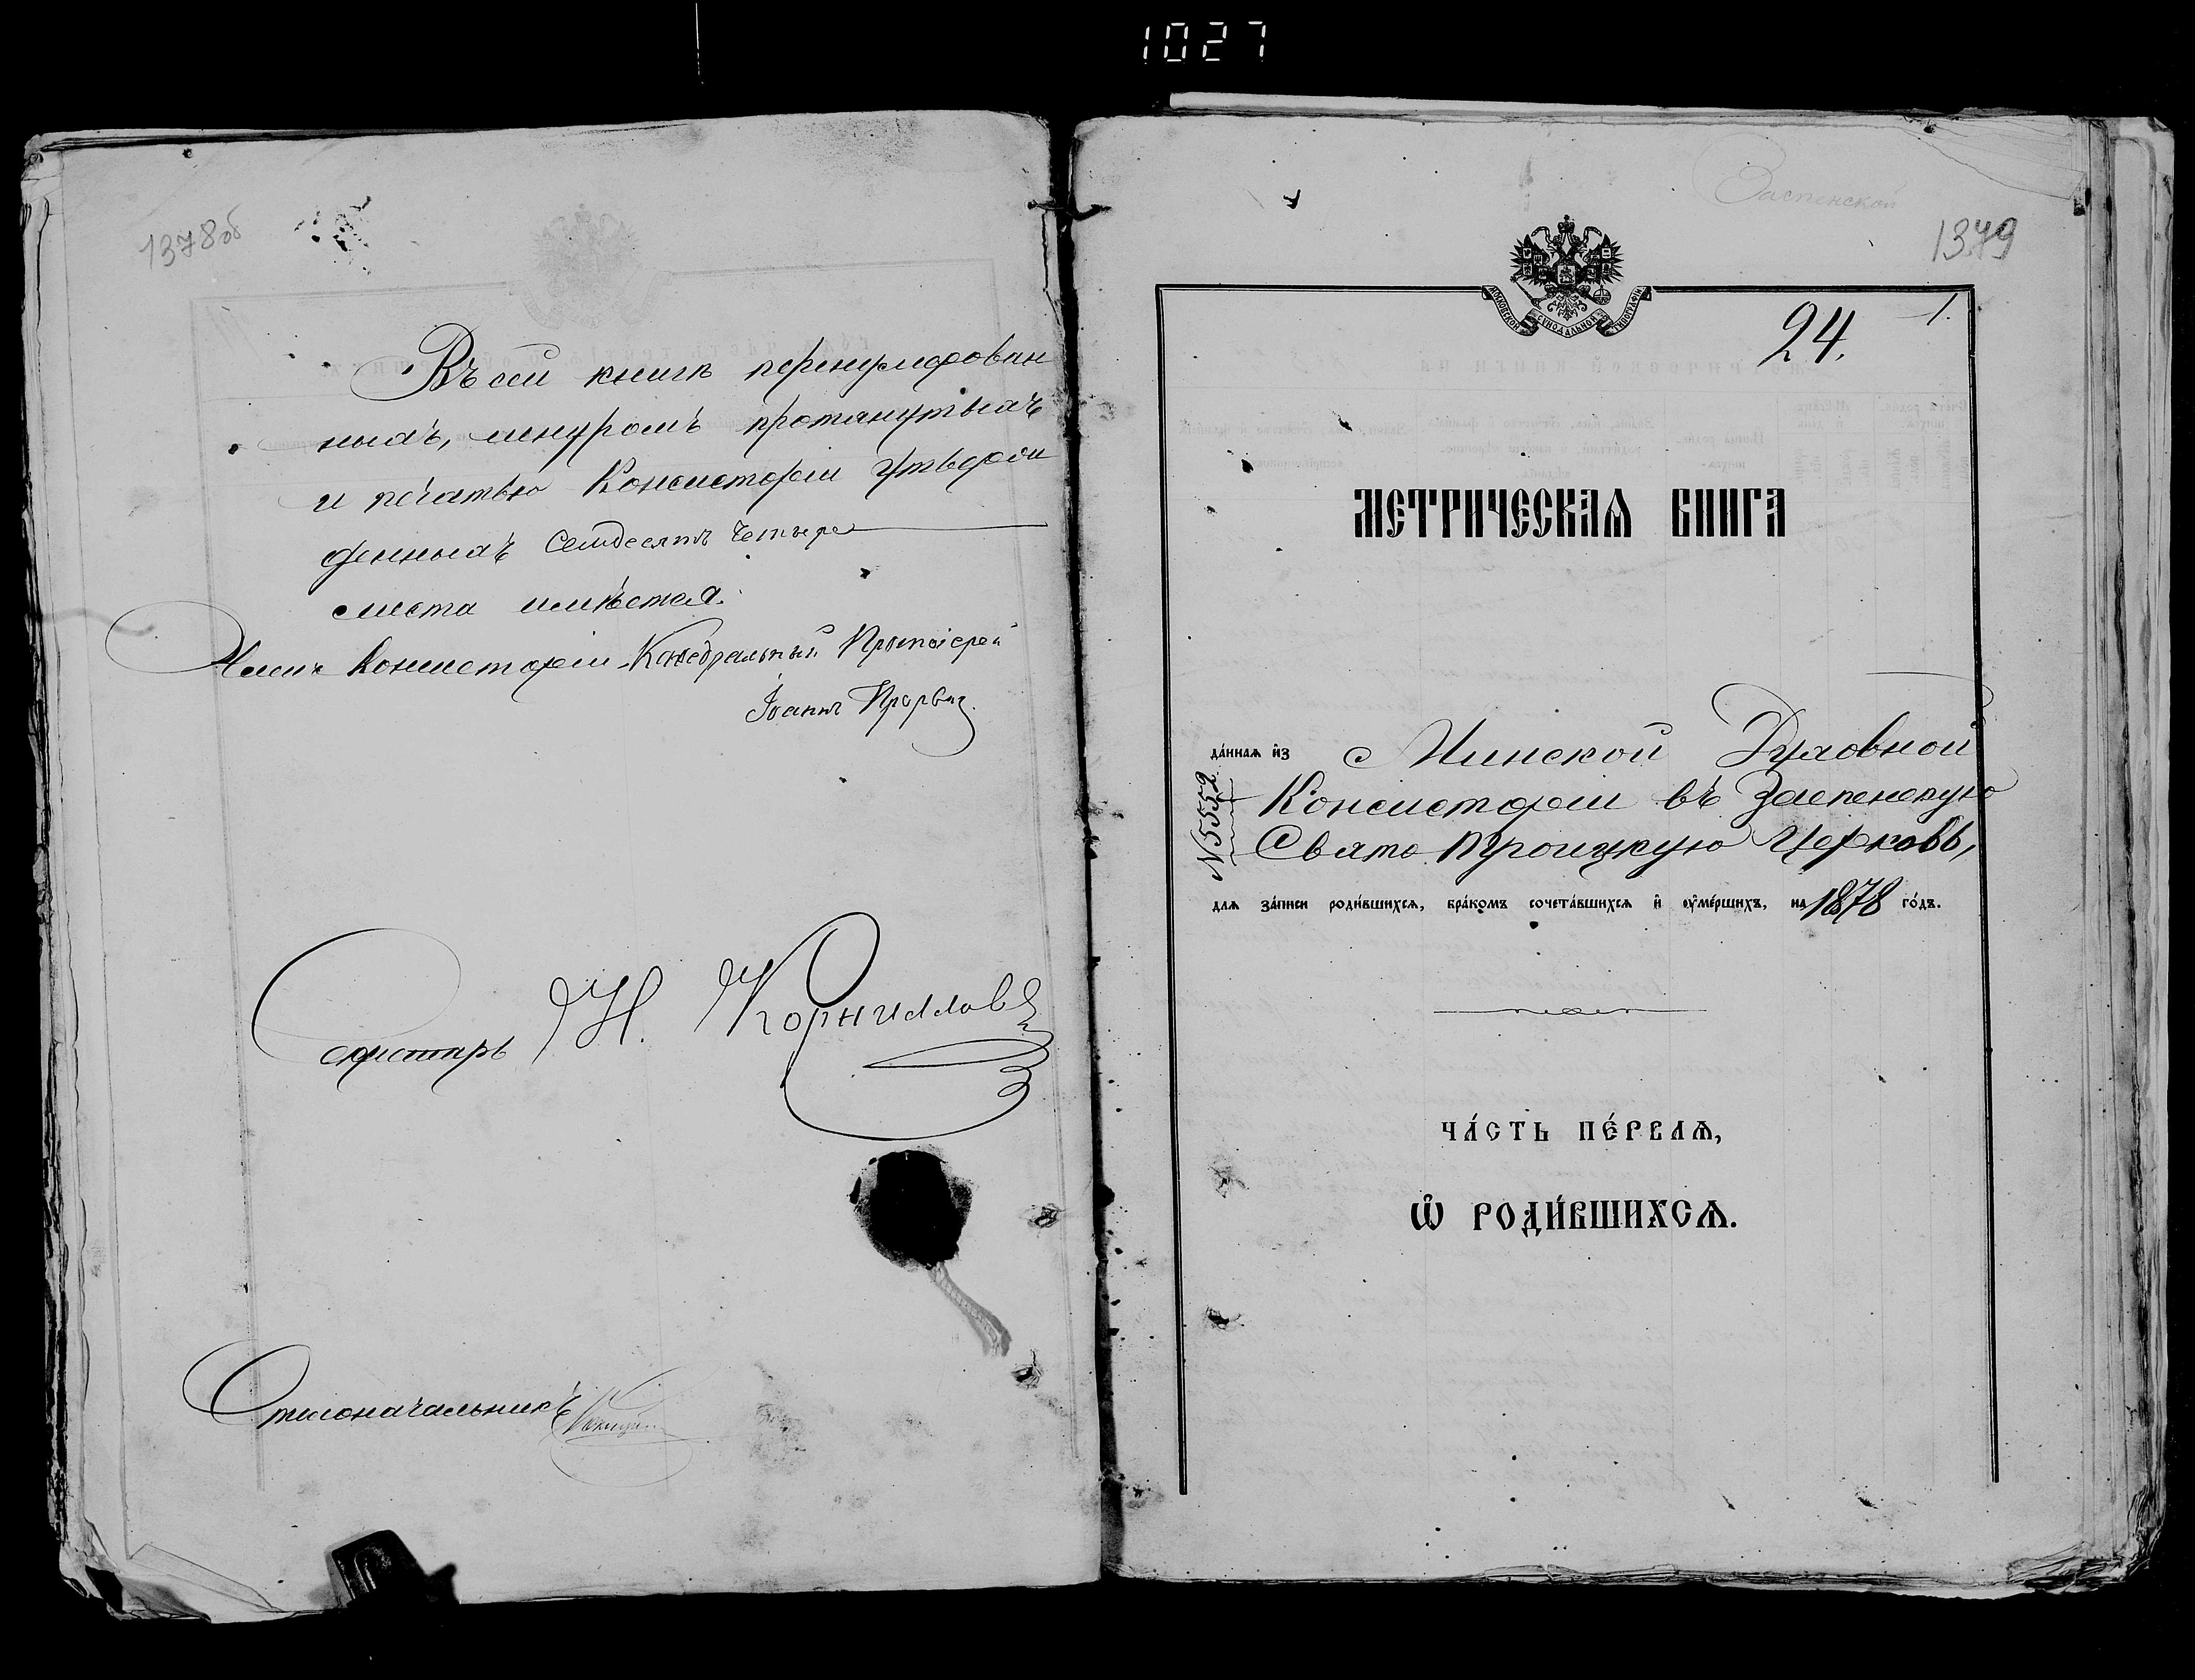 1027
1378об
Въ сей книгѣ перенумерован
ныхъ, шнуромъ протянутыхъ
и печатью Консисторіи утверж
денныхъ семдесятъ четыре
листа имѣется.
Членъ Консисторіи, Каѳедральный Протоіерей
Іоаннъ
Секретарь Н. Корниловъ
Столоначальникъ
Заспенской
1379
МОСКОВСКОЙ СѴНОДАЛЬНОЙ ТИПОГРАФІИ
24. 1.
МЕТРИЧЕСКАѦ КНИГА
да́ннаѧ и҆з Минской Духовной
№ 5552
Консисторіи въ Заспенскую
Свято Троицкую Церковь,
длѧ за́писи роди́вшихсѧ, бра́комъ сочета́вшихсѧ и҆ ᲂу҆ме́ршихъ, на 1878 го́дъ.
ЧА́СТЬ ПЕ́РВАѦ,
Ѽ РОДИ́ВШИХСѦ.